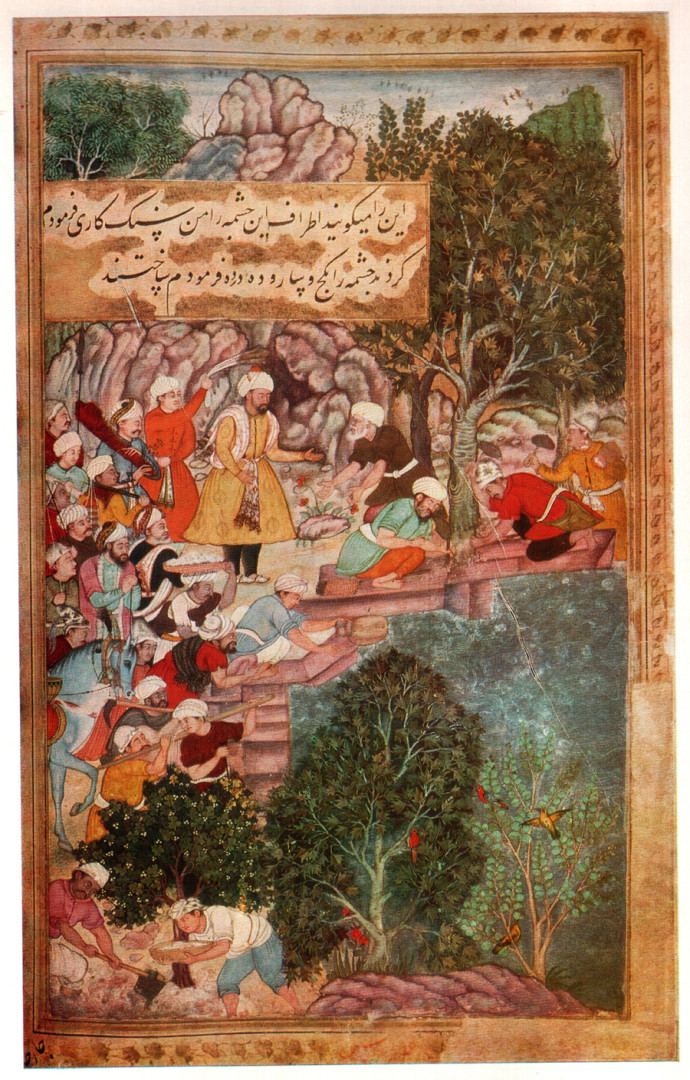 این را میکویند اطراف این چشمه را من سنک کاری فرمودم
کردند چشمه را بکج و سارو ده درده فرمودم ساختند